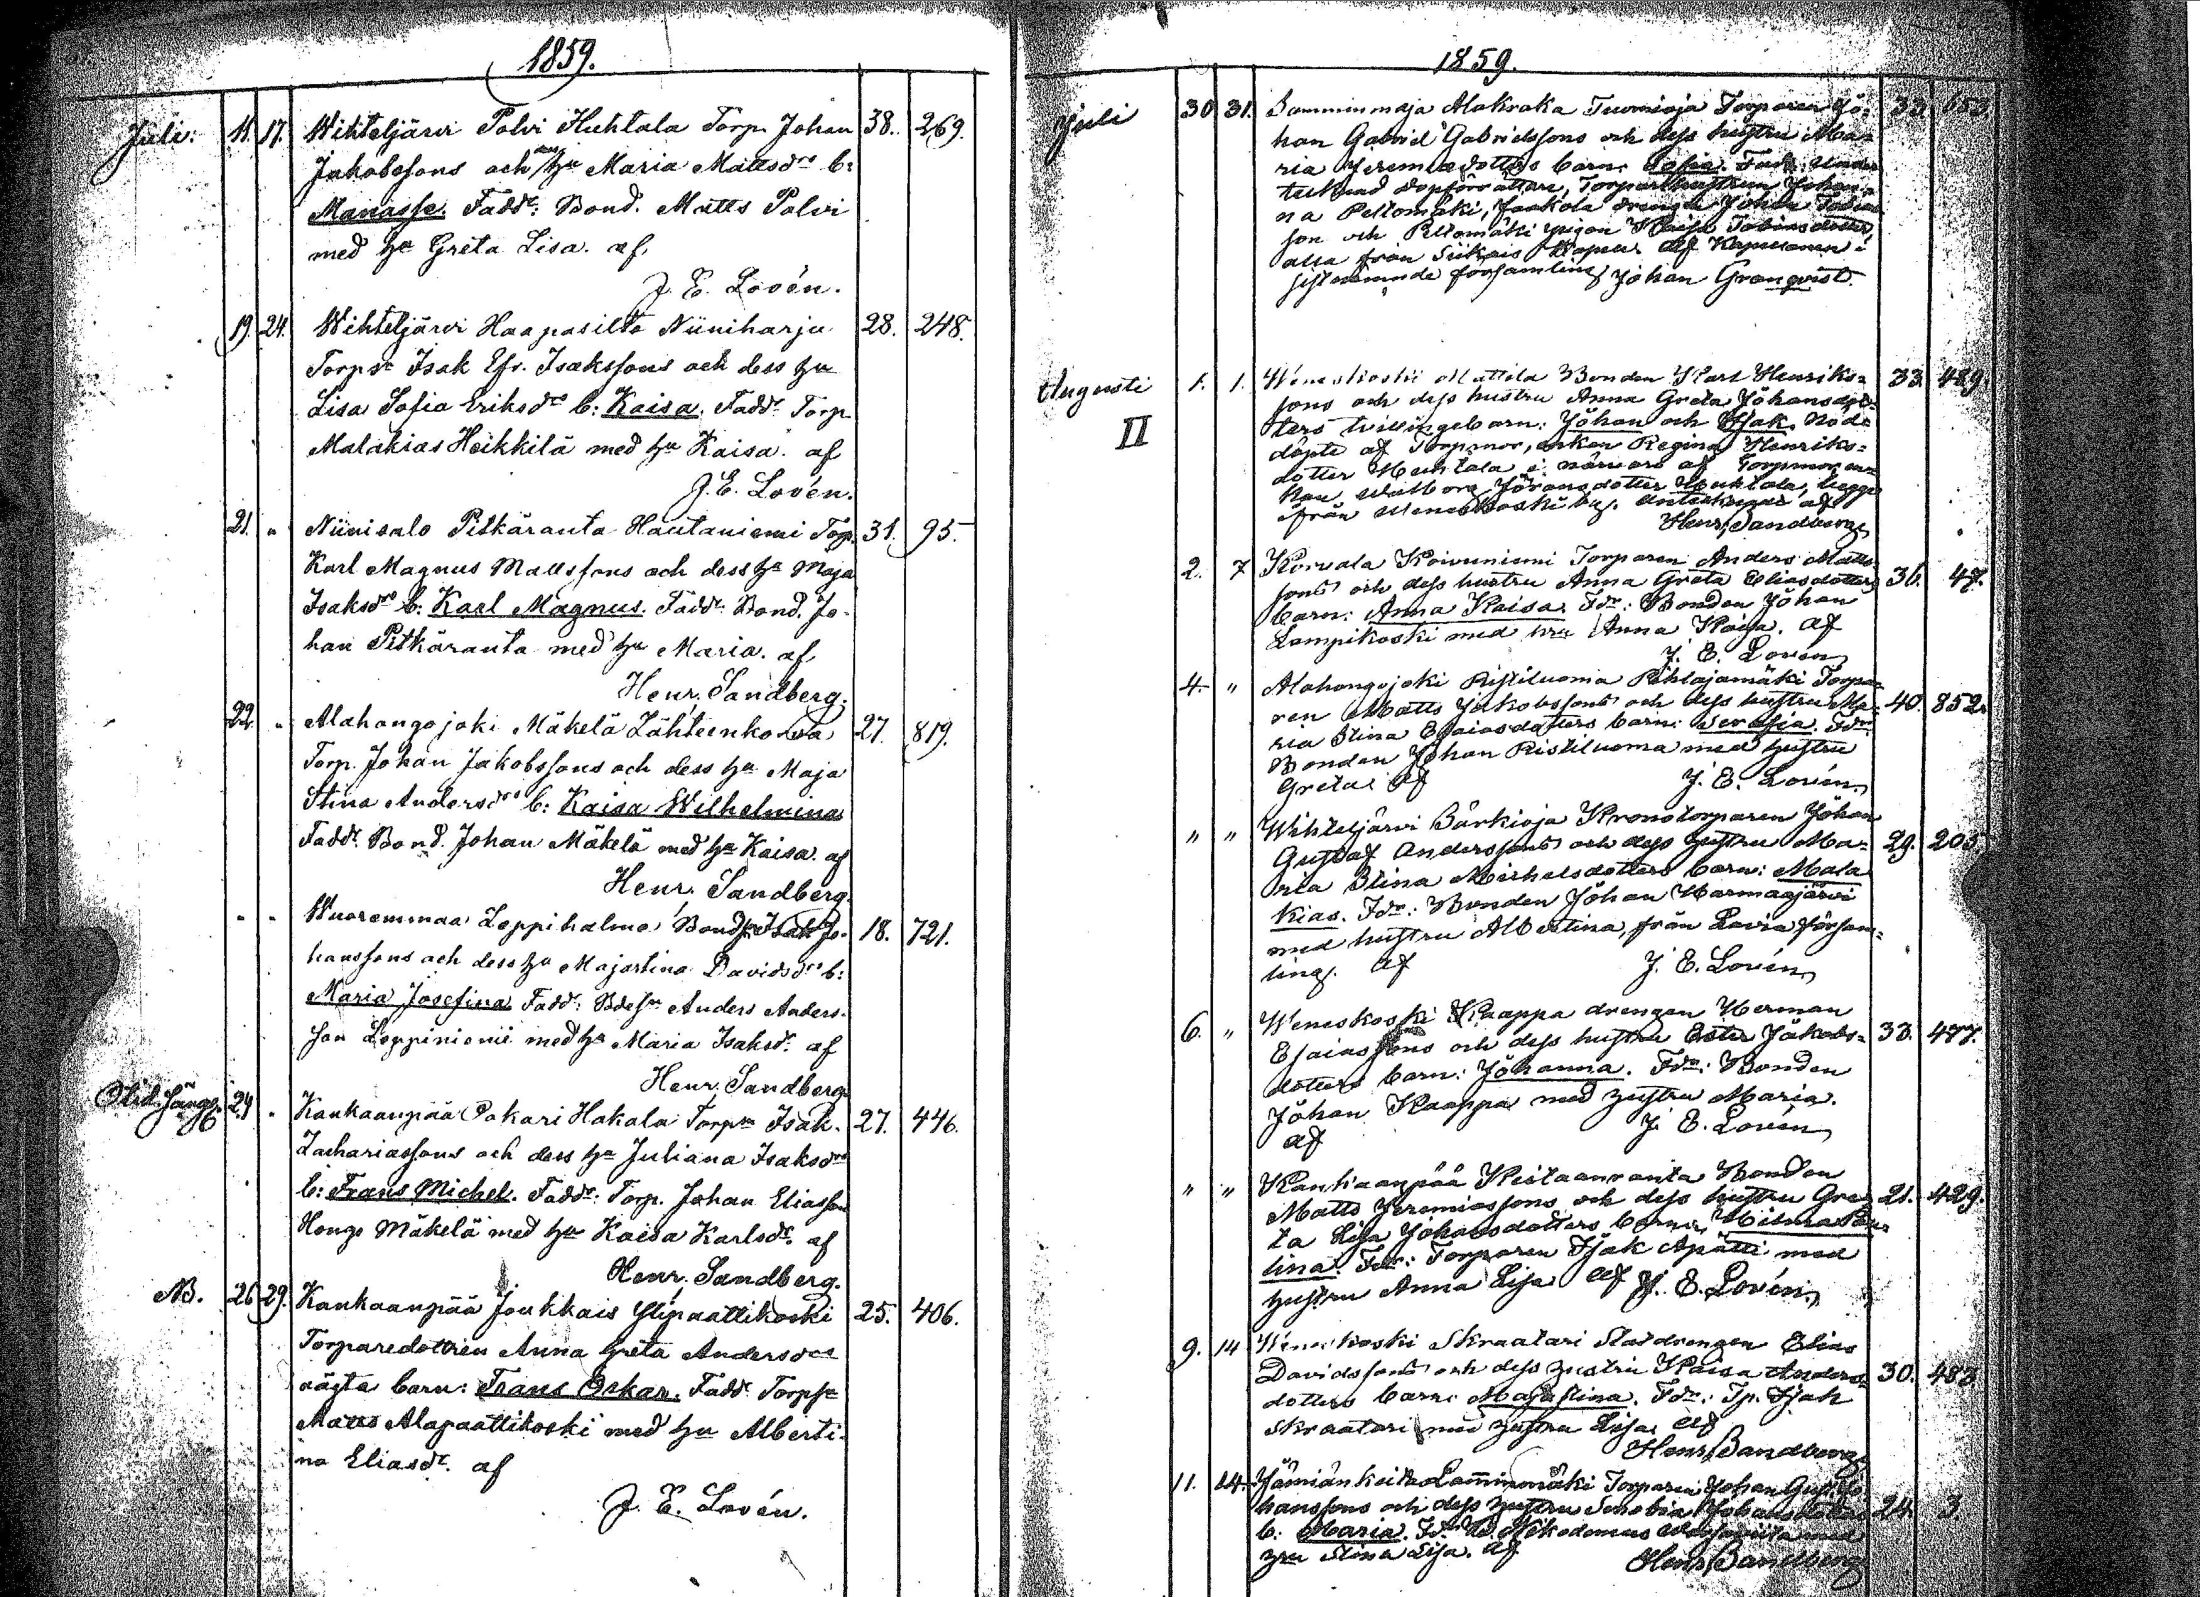 1859.
Juli. 11. 17. Wihteljärvi Polvi Huhtala Torp. Johan 38. 269.
Jakobssons och dess hu Maria Mattsdrs b:
Manasse. Faddr: Bond. Matts Polvi
med hu Greta Lisa. af
J. E. Lovén.
19. 24. Wihteljärvi Haapasilta Niiniharju 28. 248.
Torpn Isak Efr. Isakssons och dess hu
Lisa Sofia Eriksdrs b: Kaisa. Faddr Torp.
Malakias Heikkilä med hu Kaisa. af
J. E. Lovén.
21. " Niinisalo Pitkäranta Hautaniemi Torp. 31. 95.
Karl Magnus Mattssons och dess hu Maja
Isaksdrs b: Karl Magnus. Faddr: Bond. Jo-
han Pitkäranta med hu Maria. af
Henr. Sandberg.
22. " Alahongojoki Mäkelä Lähteenkorva 27. 819.
Torp. Johan Jakobssons och dess hu Maja
Stina Andersdrs b: Kaisa Wilhelmina
Faddr. Bond. Johan Mäkelä med hu Kaisa. af
Henr. Sandberg.
" " Wuorenmaa Leppihalme Bondsn Isak Jo- 18. 721.
hanssons och dess hu Majastina Davidsdrs b:
Maria Josefina Faddr: Bdesn Anders Anders-
son Leppiniemi med hu Maria Isaksdr. af
Henr. Sandberg.
24. " Kankaanpää Pakari Hakala Torpn Isak 27. 446.
Zachariassons och dess hu Juliana Isaksdrs
b: Frans Michel. Faddr: Torp. Johan Eliasson
Hongo Mäkelä med hu Kaisa Karlsdr. af
Henr. Sandberg.
NB. 26. 29. Kankaanpää Joukkais Ylipaattikoski 25. 406.
Torparedottren Anna Greta Andersdrs
oägta barn: Frans Oskar. Faddr. Torpn
Matts Alapaattikoski med hu Alberti-
na Eliasdr. af
J. E. Lovén.
1859.
Juli 30. 31. Samminmaja Alakraka Tuomioja Torparen Jo- 33. 653.
han Gabriel Gabrielssons och dess hustru Ma-
ria Jeremiedotters barn: Sofia. Fadr: Under
tecknad dopförrättare, Torparehustrun Johan-
na Peltomäki, Jaakola drengen Johan Tobias
son och Peltomäki pigan Kaisa Tobiasdotter,
alla från Siikais Kapell. af Kapellanen i
sistnämnde församling Johan Granqvist.
Augusti 1. 1. Weneskoski Mattila Bonden Karl Henriks- 33. 489.
II sons och dess hustru Anna Greta Johansdot-
ters twillingebarn: Johan och Isak. Nöd-
döpte af Torpmor, enkan Regina Henriks-
dotter Huhtala i närvaro af Torpmor en-
kan Walborg Göransdotter Huhtala, begge
från Weneskoski by. Antecknadt af
Henr. Sandberg.
2. 7 Korvala Koivuniemi Torparen Anders Matts- 36. 47.
sons och dess hustru Anna Greta Eliasdotters
barn: Anna Kaisa. Fdr: Bonden Johan
Lampikoski med hru Anna Kaisa. af
J. E. Lovén
4. " Alahongojoki Ristiluoma Pihlajamäki Torpa- 40. 852.
ren Matts Jakobssons och dess hustru Ma-
ria Stina Esaiasdotters barn: Serafia. Fdr:
Bonden Johan Ristiluoma med hustru
Greta. af J. E. Lovén
" " Wihteljärvi Särkioja Kronotorparen Johan 29. 205.
Gustaf Anderssons och dess hustru Ma-
ria Stina Michelsdotters barn: Mala
kias. Fdr: Bonden Johan Harmaajärvi
med hustru Albertina, från Lavia försam-
ling. af J. E. Lovén
6. " Weneskoski Kaappa drengen Herman 33. 477.
Esaiassons och dess hustru Ester Jakobs-
dotters barn: Johanna. Fdr: Bonden
Johan Kaappa med hustru Maria.
af J. E. Lovén
" " Kankaanpää Keitaanranta Bonden 21. 429.
Matts Jeremiassons och dess hustru Gre-
ta Lisa Johansdotters barn: Hilma Pau-
lina. Fdr: Torparen Isak Apätti med
hustru Anna Lisa af J. E. Lovén
9. 14 Weneskoski Skraatari Statdrengen Elias 30. 483
Davidssons och dess hustru Kaisa Anders-
dotters barn: Majastina. Fdr: Tp. Isak
Skraatari med hustru Lisa af
Henr. Sandberg
11. 14. Jämiänkeita Lamminmäki Torparen Johan Gust. Jo- 24. 3.
hanssons och dess hustru Senobia Johansdotters
b: Maria. Fdr Nikodemus med
hru Stina Lisa. af Henr. Sandberg